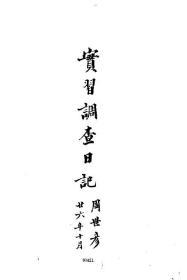 實習調查日記
周世彥
廿六年十月